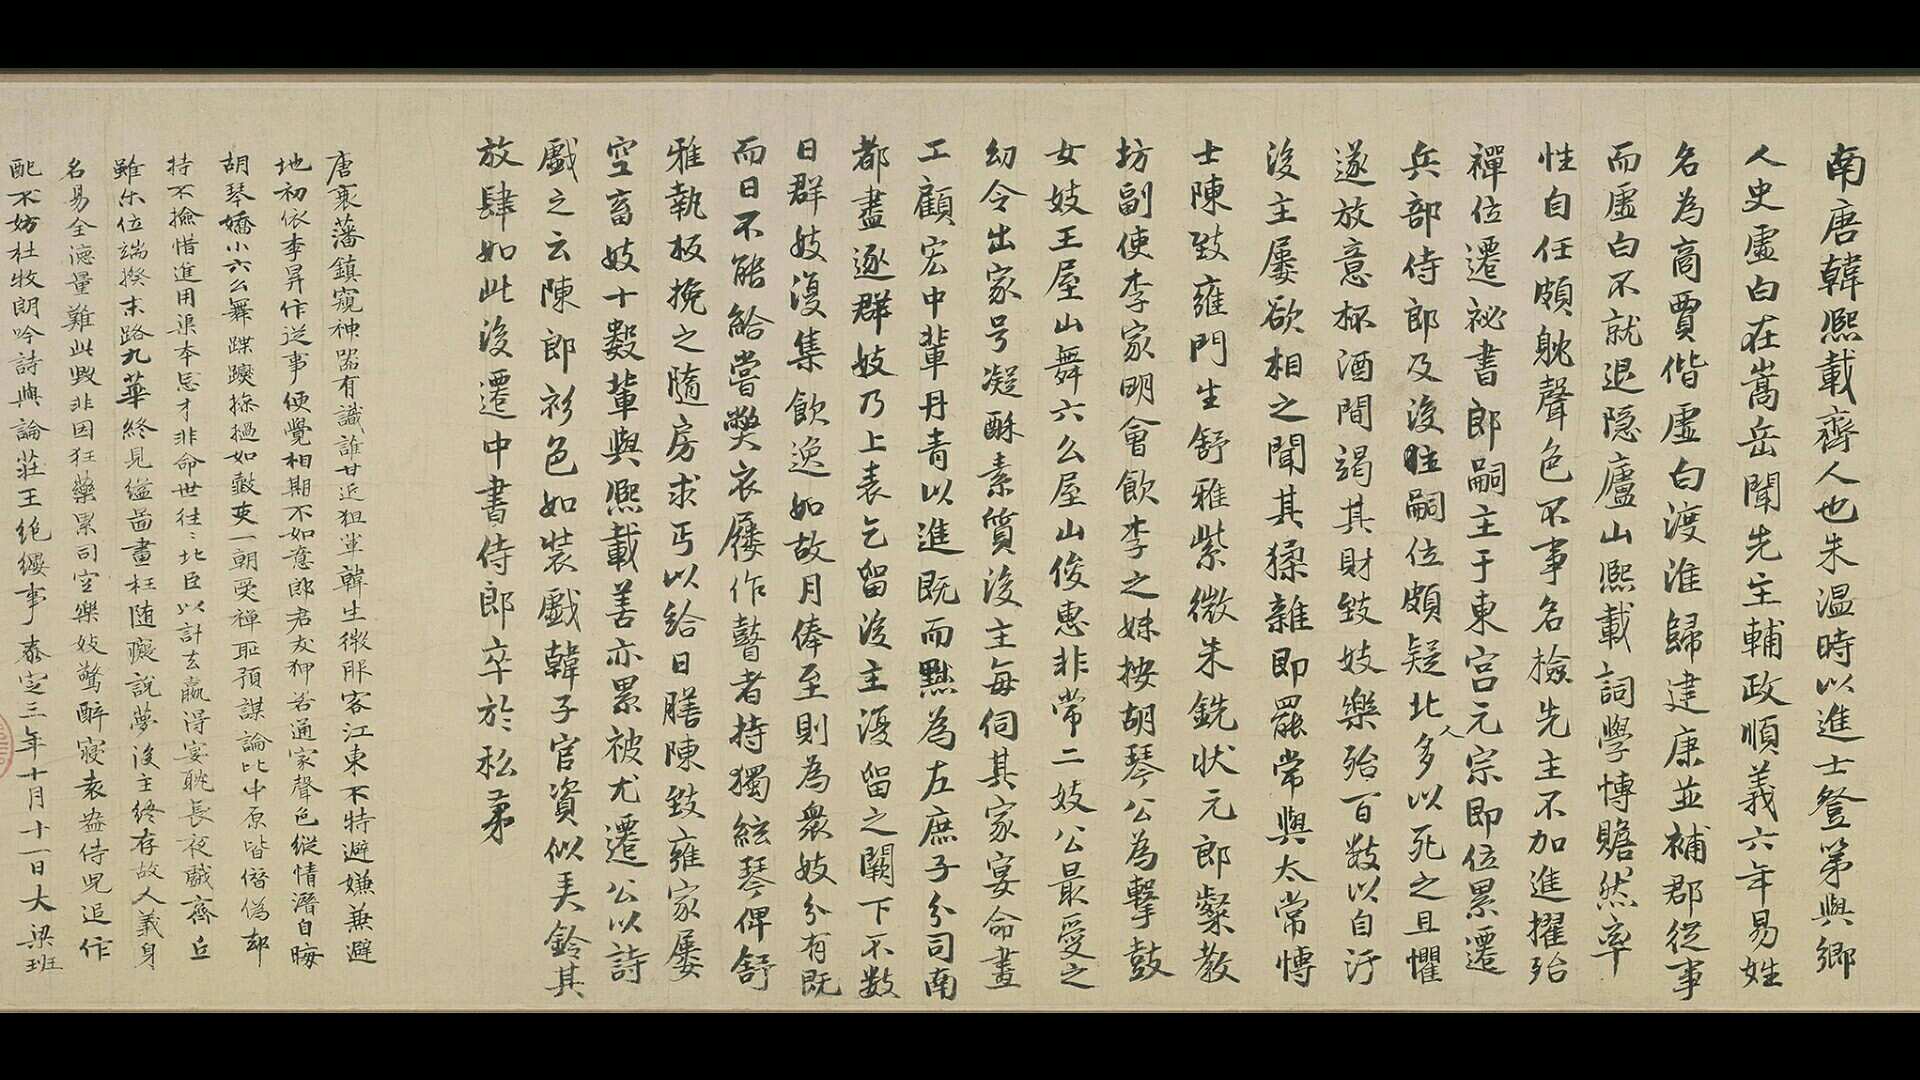 南唐韓熙載齊人也朱温時以進士登第與鄉
人史虛白在嵩岳聞先主輔政順義六年易姓
名為商賈偕虛白渡淮歸建康並補郡從事
而虛白不就退隐廬山熙載詞學博贍然率
性自任頗躭聲色不事名檢先主不加進擢殆
禪位遷祕書郎嗣主于東宫元宗即位累遷
兵部侍郎及後主嗣位頗疑北人多以死之且懼
遂放意杯酒間竭其財致妓樂殆百數以自汙
後主屢欲相之聞其猱雜即罷常與太常博
士陳致雍門生舒雅紫微朱銑狀元郎粲教
坊副使李家明會飲李之妹按胡琴公為擊鼓
女妓王屋山舞六么屋山俊惠非常二妓公最愛之
幼令出家号凝酥素質後主每伺其家宴命畫
工顧宏中輩丹青以進既而黜為左庶子分司南
都盡逐群妓乃上表乞留後主復留之闕下不數
日群妓復集飲逸如故月俸至則為衆妓分有既
而日不能給嘗弊衣屨作瞽者持獨絃琴俾舒
雅執板挽之隨房求丐以給日膳陳致雍家屢
空畜妓十數輩與熙載善亦累被尤遷公以詩
戲之云陳郎衫色如裝戲韓子官資似美鈴其
放肆如此後遷中書侍郎卒於私苐
唐衰藩鎮窺神器有識誰甘近狙軰韓生微服客江東不特避嫌兼避
地初依李昇作逆事便覺相期不如意郎君友狎若通家聲色縱情潛自晦
胡琴嬌小六么舞蹀躞掺撾如鼓吏一朝受禅耻預謀論比中原皆僭偽却
持不撿惜進用渠本忌才非命世往〻北臣以計去贏得宴眈長夜戲齊丘
雖尔位端揆末路九華終見縊畵畫枉随癡說夢後主終存故人義身
名易全德量難此毀非因狂藥累司空樂妓驚醉寝袁盎侍児追作
配不妨杜牧朗吟詩與論莊王絶纓事泰定三年十月十一日大梁班